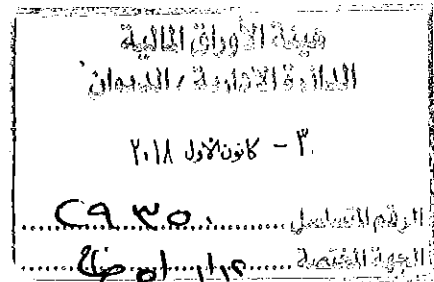 هيئة الأوراق المالية
الدائرة الادارية / الديوان
٣ - كانون الأول ٢٠١٨
الرقم المتسلسل ٢٩٣٥٠
الجهة المختصة